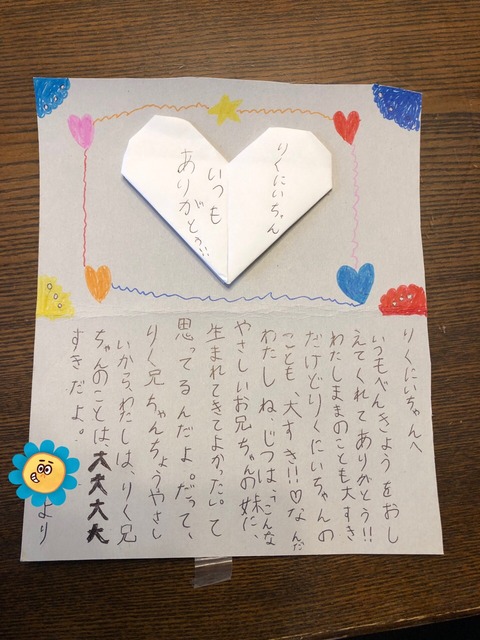 りくにいちゃん
いつも
ありがとう!!
りくにいちゃんへ
いつもべんきょうをおし
えてくれてありがとう!!
わたしままのことも大すき
だけどりくにいちゃんの
ことも、大すき!!♡なんだ
わたしね、じつは、こんな
やさしいお兄ちゃんの妹に、
生まれてきてよかった。て
思ってるんだよ。だって、
りく兄ちゃんちょうやさし
いから、わたしは、りく兄
ちゃんのことは、大大大大
すきだよ。
より